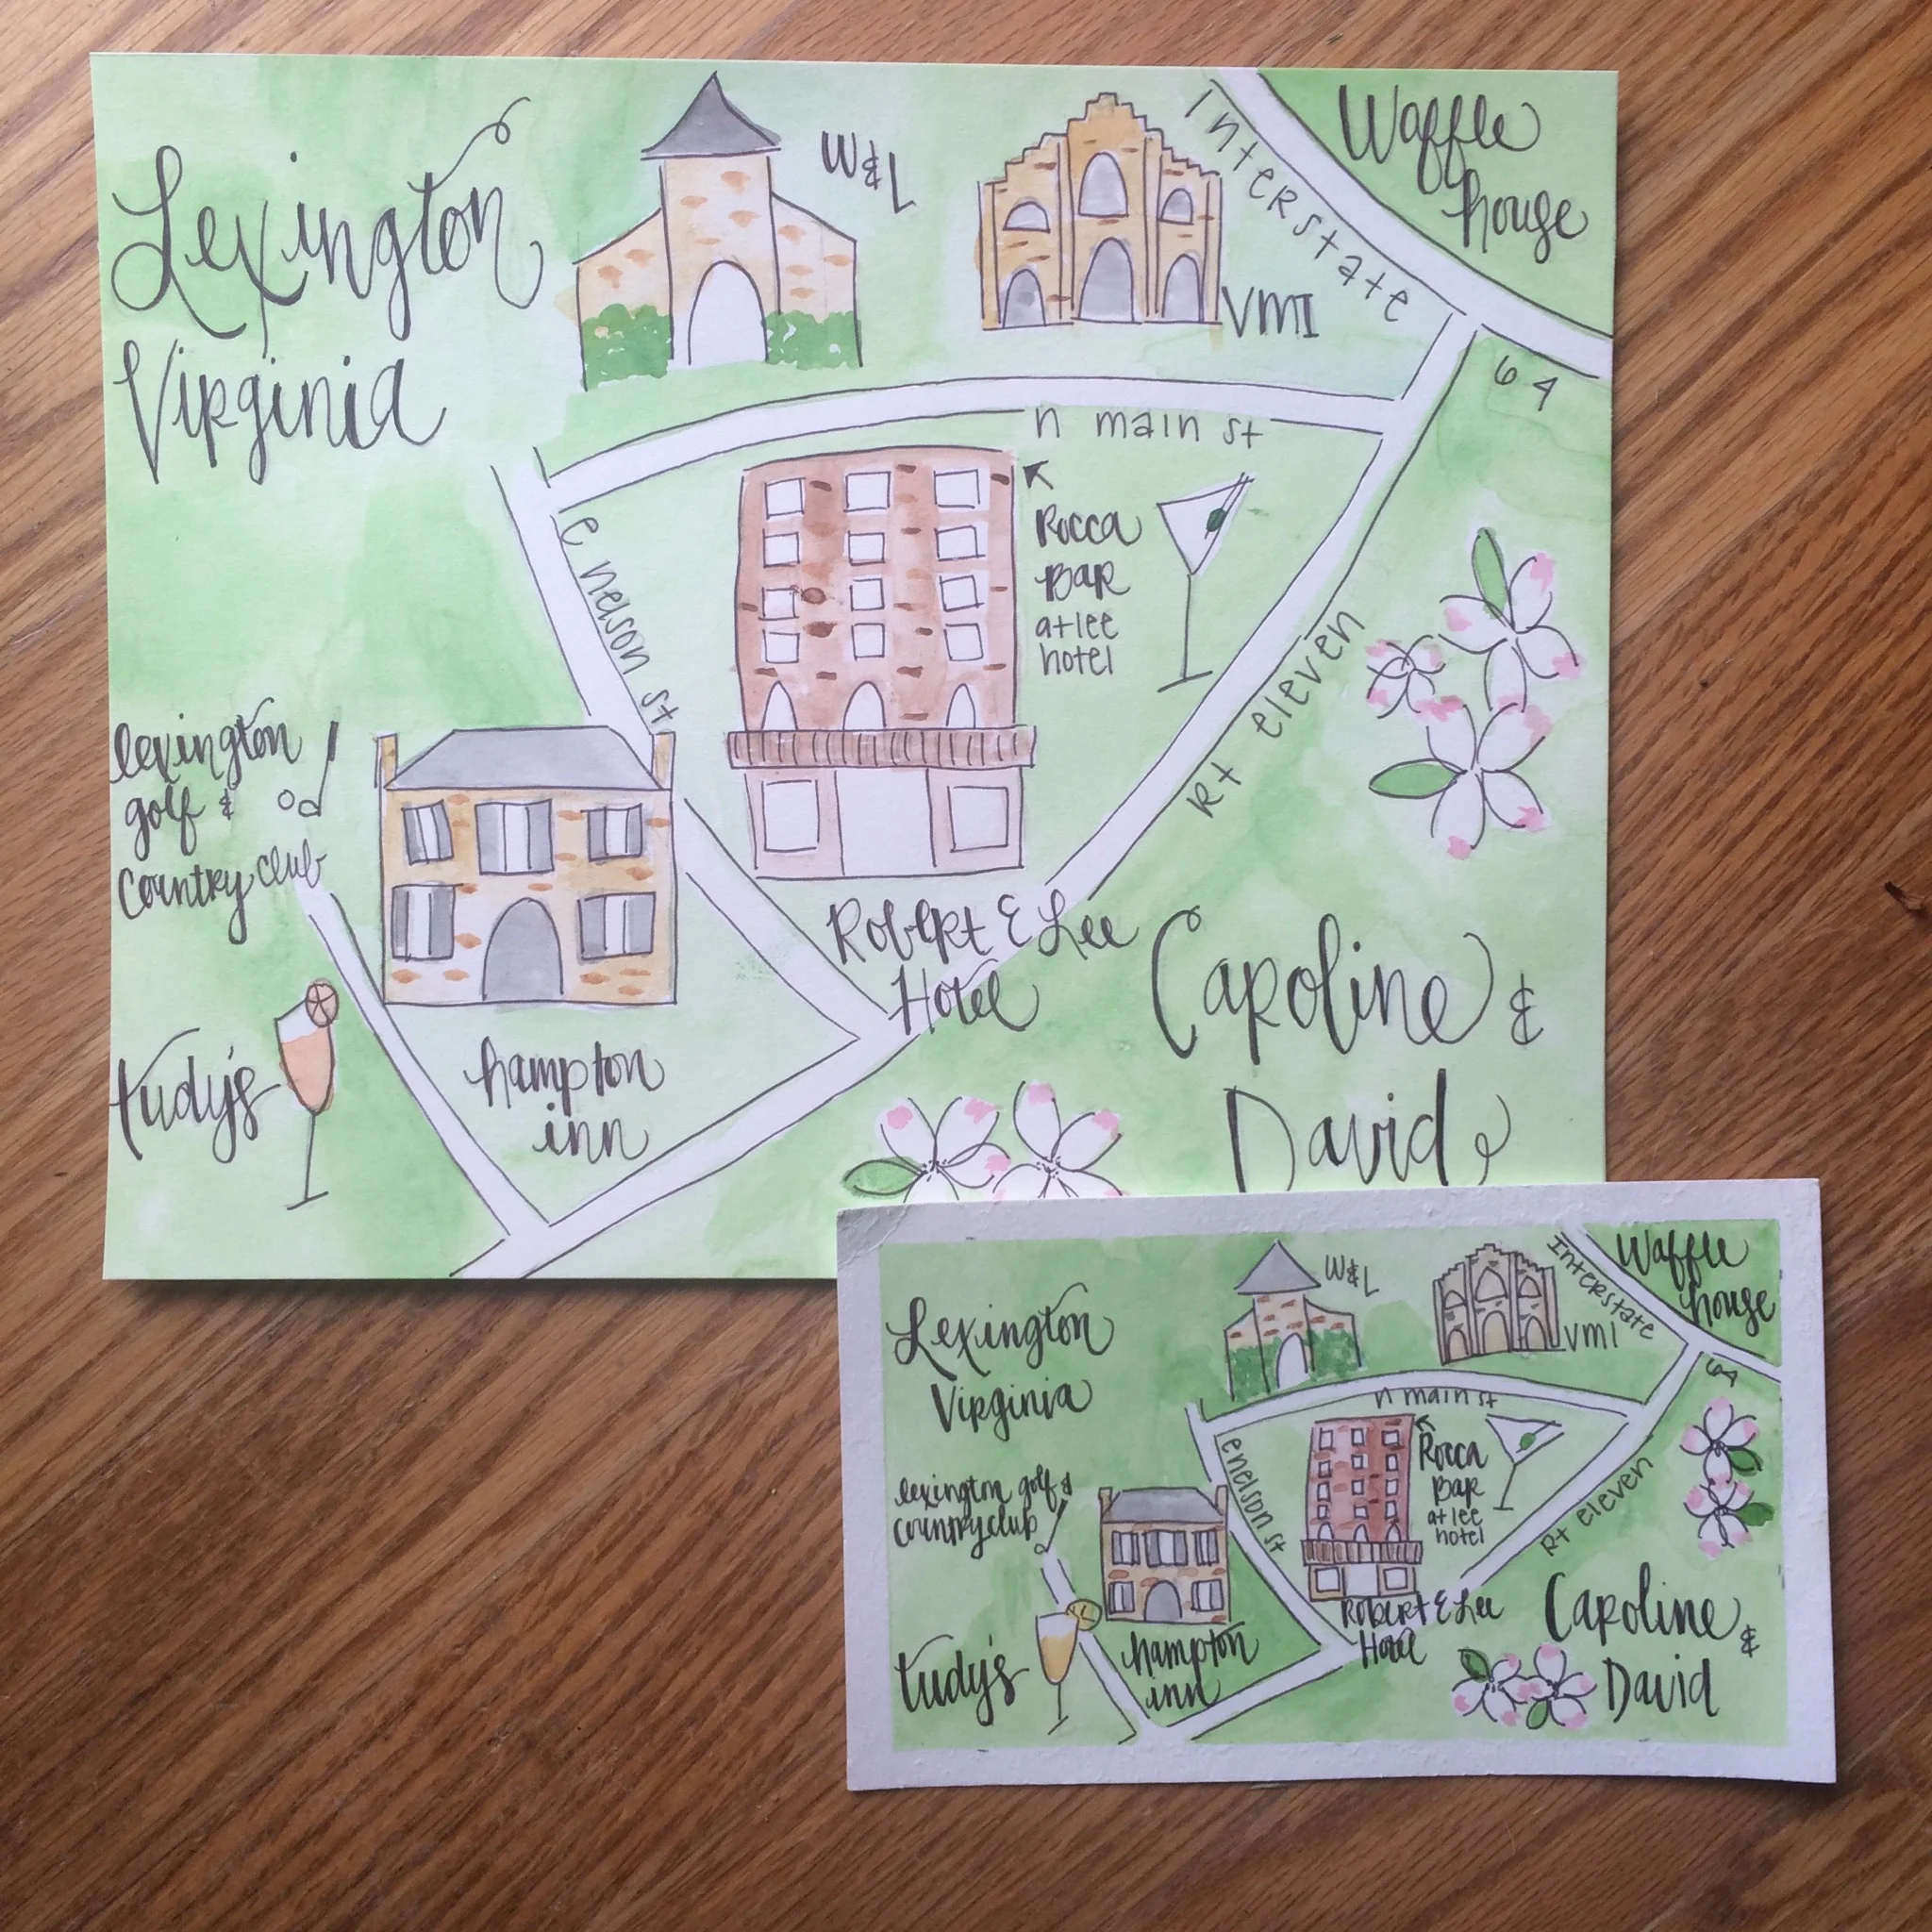 Lexington
Virginia
W&L
VMI
Interstate
64
Waffle
house
n main st
e nelson st
Rocca
Bar
at lee
hotel
Rt eleven
lexington
golf &
Country club
Robert E Lee
Hotel
tudy's
hampton
inn
Caroline &
David
Lexington
Virginia
W&L
VMI
Interstate
64
Waffle
house
n main st
e nelson st
Rocca
Bar
at lee
hotel
Rt eleven
lexington golf &
country club
Robert E Lee
Hotel
tudy's
hampton
inn
Caroline &
David